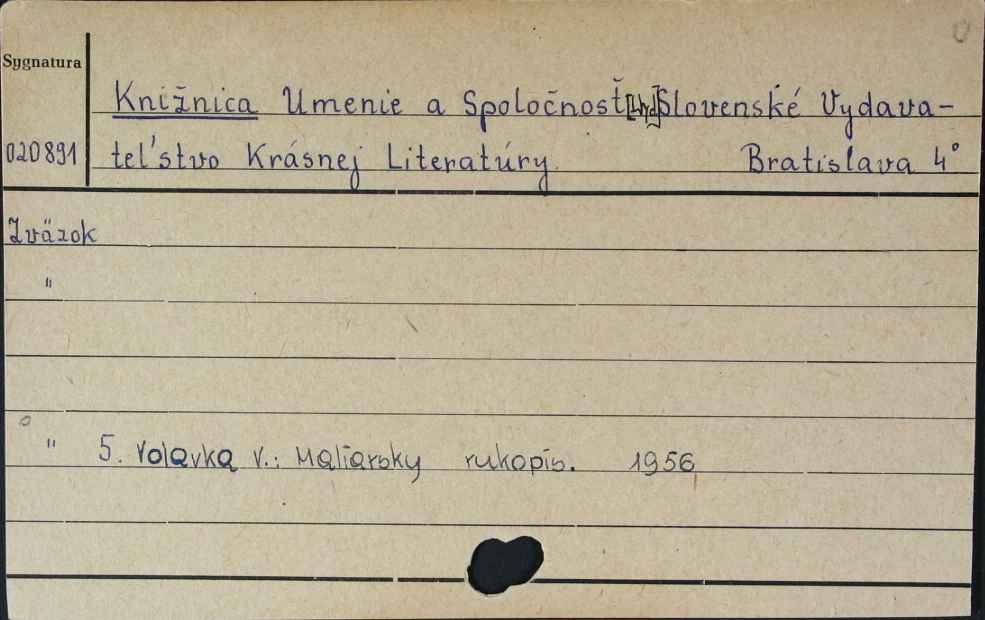 Sygnatura
Knižnica Umenie a Spoločnosť [Wyd] Slovenské Vydava-
020891 teľstvo Krásnej Literatúry. Bratislava 4°
Zväzok
"
" 5. Volavka V.: Maliarsky rukopis. 1956